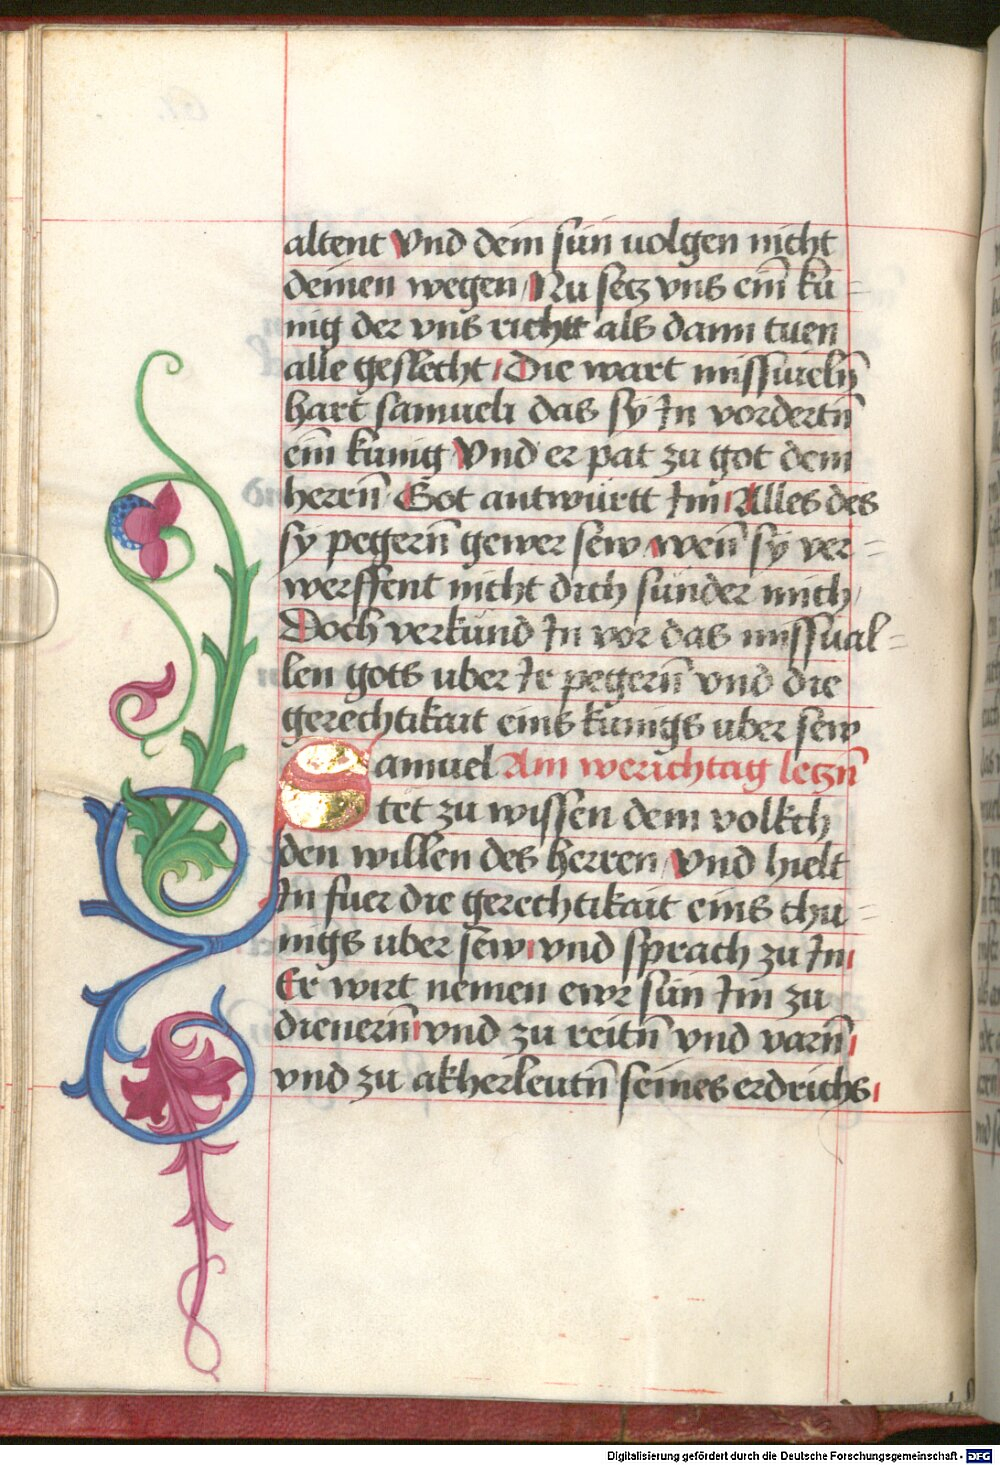 altent Vnd dein sün uolgen nicht
deinen wegen / Nu setz vns ein̄ kü=
nig der vns richtt als dann tuen
alle geslecht / Die wart missuelīg
hart samueli das sy Jn vordertn̄
ein̄ künig Vnd er pat zu got dem
herrn̄ Got antwürtt Jm Alles des
sy pegern̄ gewer sew / wen̄ sy ver=
werffent nicht dich sünder mich /
Doch verkünd Jn vor das missual=
len gots uber Jr pegern̄ vnd die
gerechtikait eins künigs uber sew
Samuel Am werichtag letzn̄
tet zu wissen dem volkch
den willen des herren / Vnd hielt
Jn fuer die gerechtikait eins chu=
nigs uber sew / vnd sprach zu Jn /
Er wirt nemen ewr sün Jm zu
dienern̄ / vnd zu reitn̄ vnd varn̄ /
vnd zu akherleutn̄ seines erdrichs /
Digitalisierung gefördert durch die Deutsche Forschungsgemeinschaft - DFG